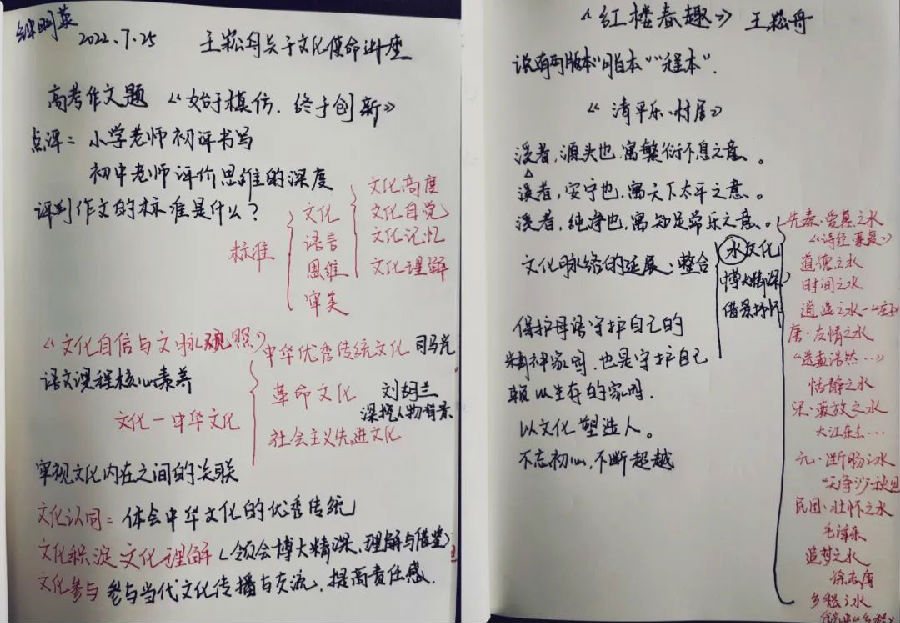 2022.7.25 王崧舟关于文化使命讲座
高考作文题《始于模仿，终于创新》
点评：小学老师初评书写
初中老师评价思维的深度
评判作文的标准是什么？
标准
文化
语言
思维
审美
文化高度
文化自觉
文化记忆
文化理解
《文化自信与文脉观照》
语文课程核心素养
文化—中华文化
中华优秀传统文化 司马光
革命文化 刘胡兰
深挖人物背景
社会主义先进文化
实现文化内在之间的关联
文化认同：体会中华文化的优秀传统
文化积淀 文化理解（领会博大精深，理解与借鉴）
文化参与 参与当代文化传播与交流，提高责任感.
《红楼春趣》 王崧舟
说有两版本"脂本""程本".
《清平乐·村居》
溪者，源头也，寓繁衍不息之意。
溪者，安宁也，寓天下太平之意。
溪者，纯净也，寓知足常乐之意。
文化脉络的延展·整合
水文化
博大精深
借景抒怀
保护母语守护自己的
精神家园，也是守护自己
赖以生存的家园.
以文化塑造人。
不忘初心，不断超越
先秦·爱慕之水
《诗经·蒹葭》
道德之水
时间之水
逍遥之水
唐·友情之水
"送孟浩然…"
恬静之水
宋·豪放之水
大江东去…
元·断肠之水
天净沙·秋思
民国·壮怀之水
毛泽东
追梦之水
徐志摩
乡愁之水